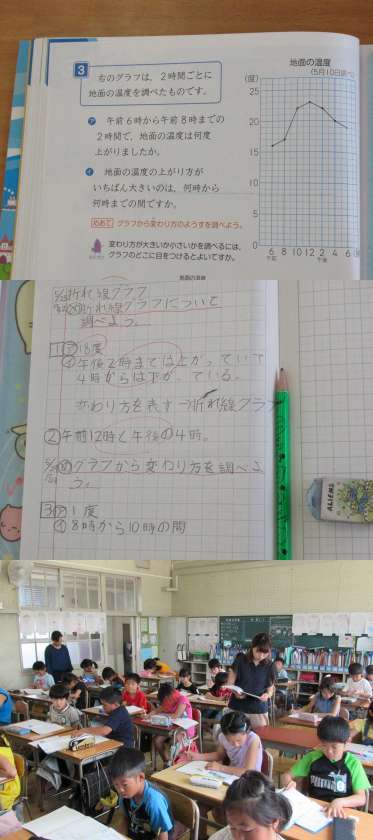 3
右のグラフは、2時間ごとに
地面の温度を調べたものです。
ア 午前6時から午前8時までの
2時間で、地面の温度は何度
上がりましたか。
イ 地面の温度の上がり方が
いちばん大きいのは、何時から
何時までの間ですか。
めあて グラフから変わり方のようすを調べよう。
変わり方が大きいか小さいかを調べるには、
グラフのどこに目をつけるとよいですか。
地面の温度
(5月10日調べ)
(度)
25
20
15
10
5
0
6 8 10 12 2 4 6
午前
午後
折れ線グラフ
折れ線グラフについて
調べよう。
1 ア 18度
イ 午後2時までは上がっていて
4時からは下がっている。
変わり方を表す→折れ線グラフ
2 午前12時と午後の4時。
グラフから変わり方を調べよ
う。
3 ア 1度
イ 8時から10時の間
ALIENS